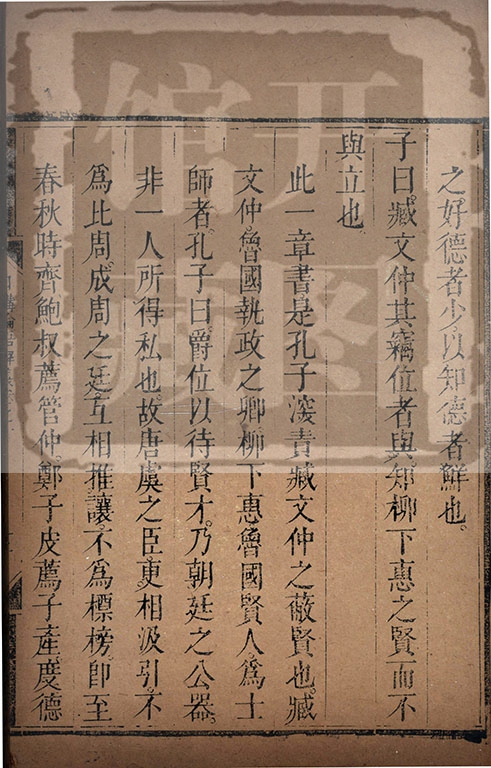 之好德者少以知德者鮮也
子曰臧文仲其竊位者與知柳下惠之賢而不
與立也
此一章書是孔子深責臧文仲之蔽賢也臧
文仲魯國執政之卿柳下惠魯國賢人為士
師者孔子曰爵位以待賢才乃朝廷之公器
非一人所得私也故唐虞之臣更相汲引不
為比周成周之廷互相推讓不為標榜即至
春秋時齊鮑叔薦管仲鄭子皮薦子產度德